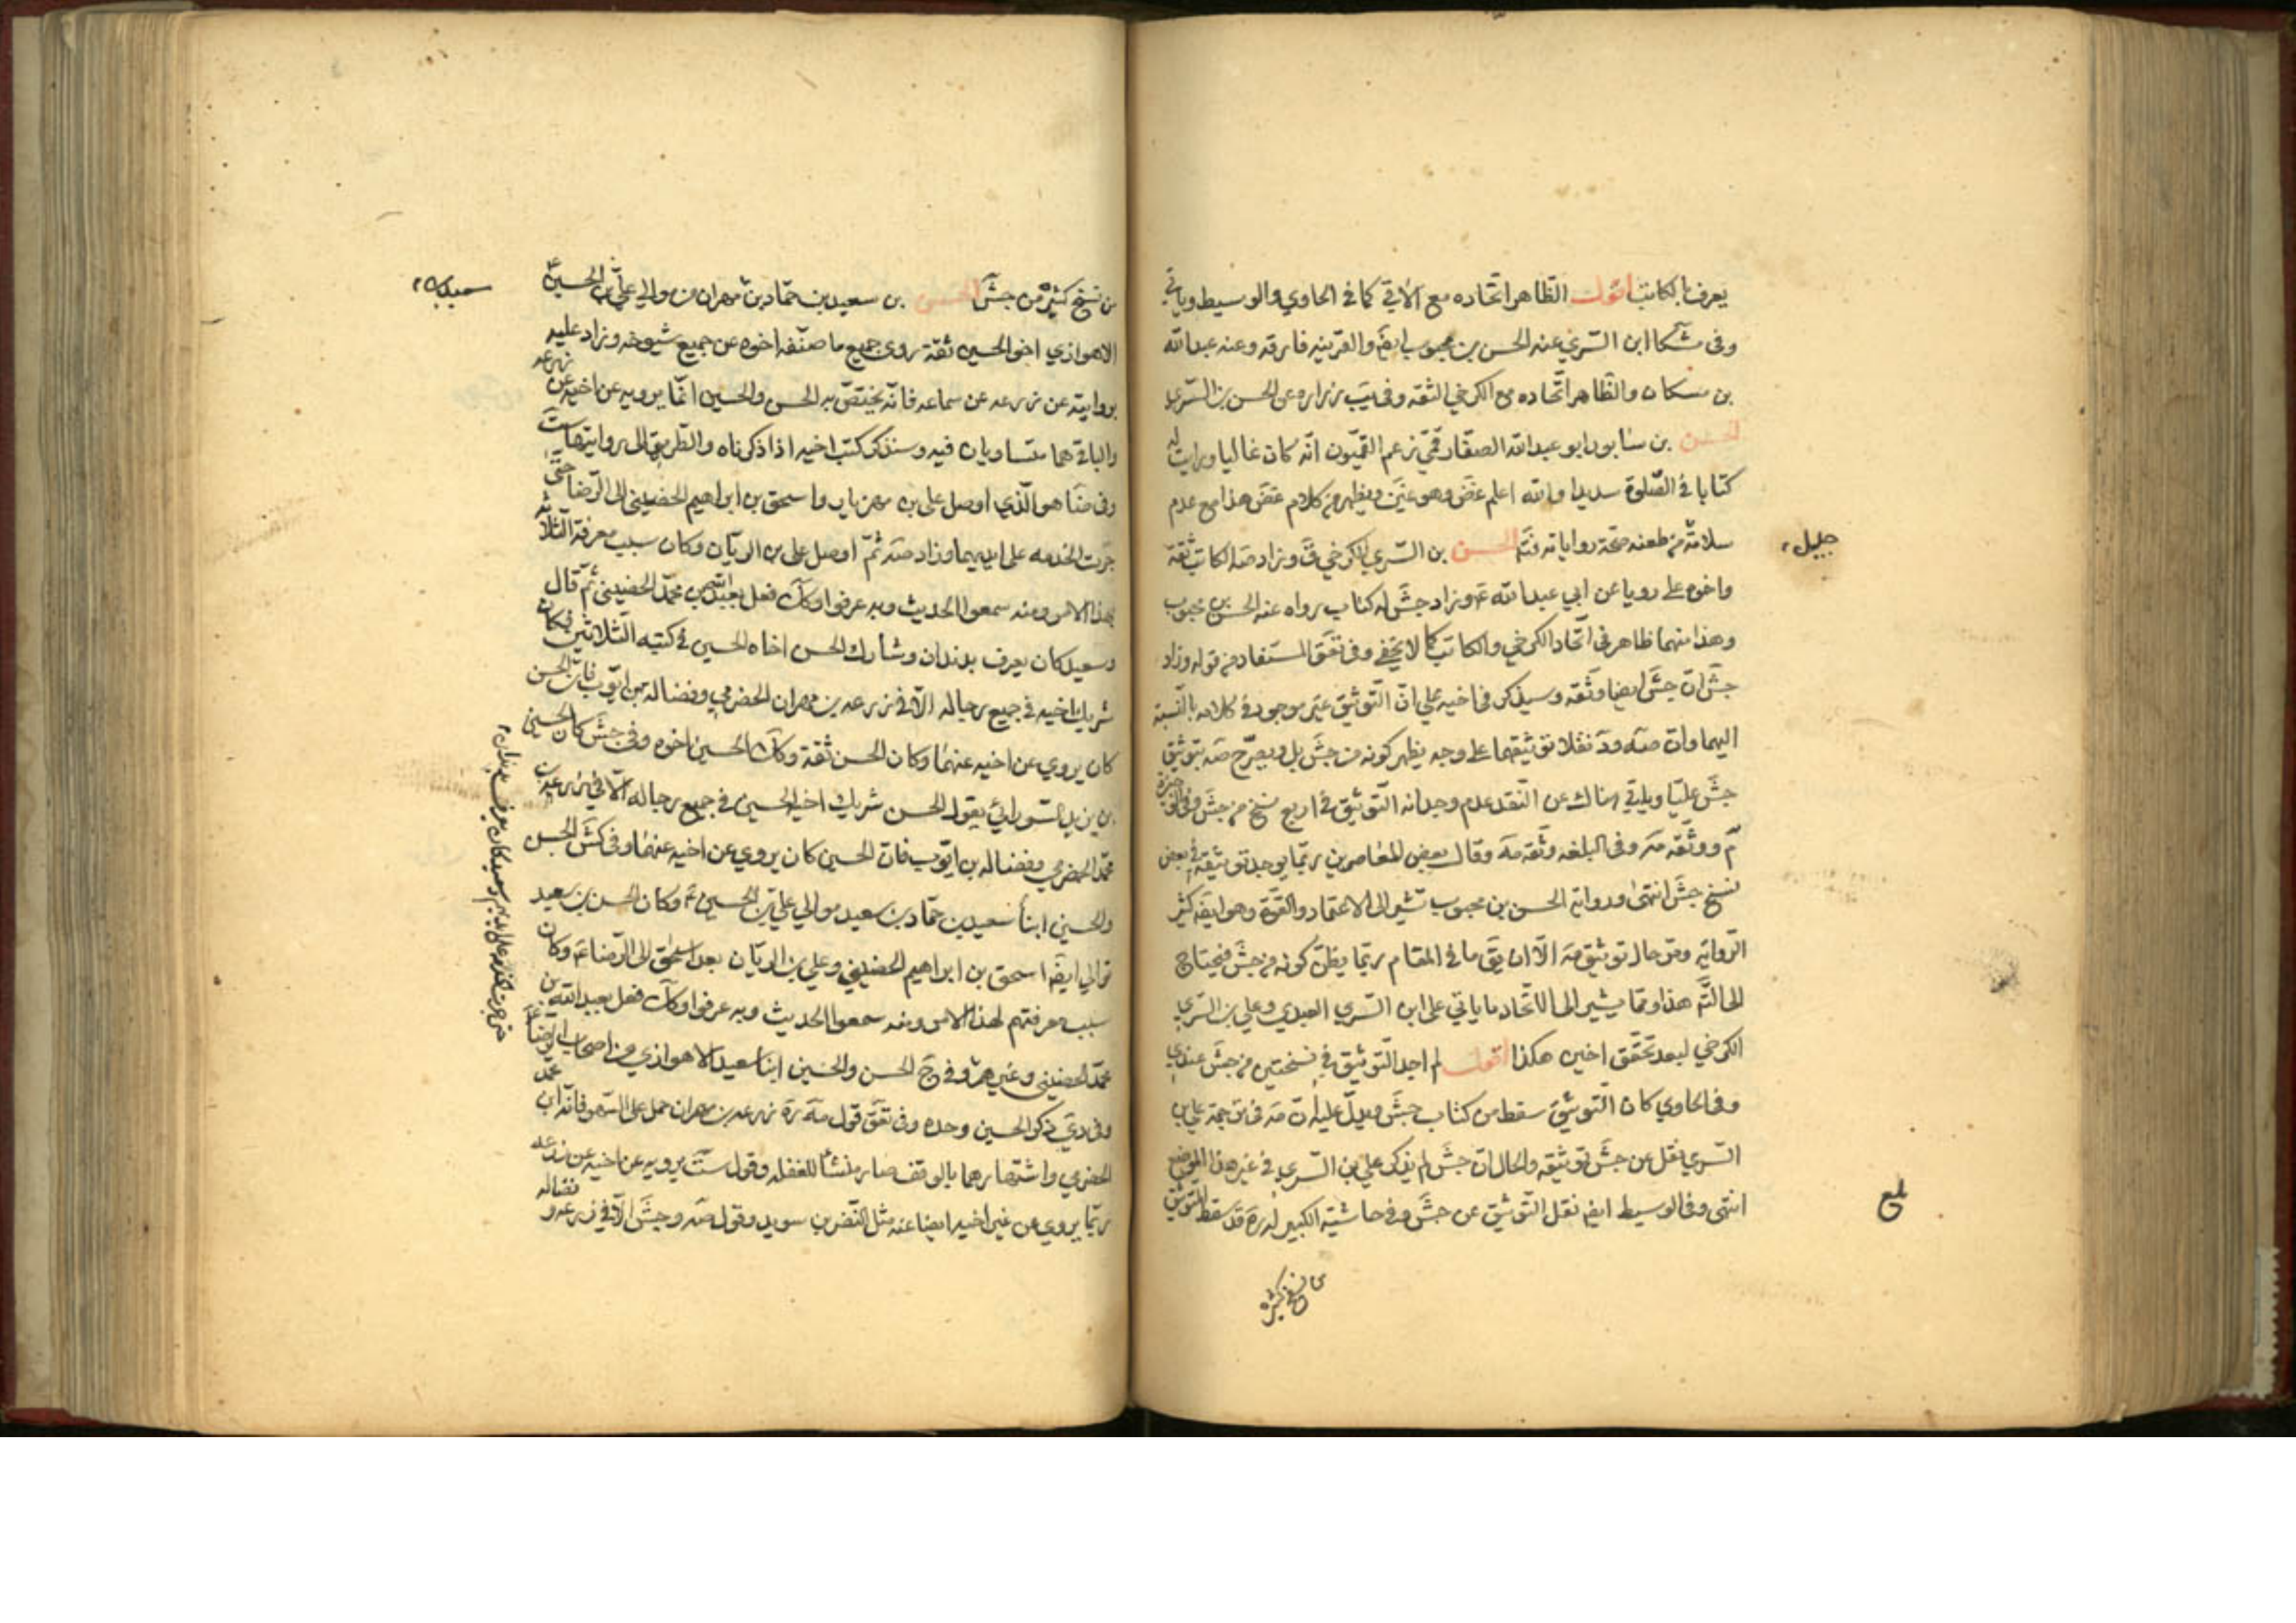 يعرف بالكاتب اقول الظاهر اتحاده مع الآتي كما في الحاوي والوسيط وياتي
وفي مشكا ابن السري عنه الحسن بن محبوب ايضَ والقرينه فارقه وعنه عبد الله
بن مسكان والظاهر اتحاده مع الكرخي الثقه وفي يب زراره عن الحسن بن السري
الحسن بن شابور ابو عبد الله الصفار قمي زعم القميون انه كان غاليا ورايت له
كتابا في الصلوة سديدا والله اعلم غض وهو عنين ويظهر من كلام غض هذا مع عدم
سلامة من طعنه صحة رواياته فتم الحسن بن السري الكرخي ق وزاد صه الكاتب ثقة
جليل
واخوه علي رويا عن ابي عبد الله ع وزاد جش له كتاب رواه عنه الحسن بن محبوب
وهذا منهما ظاهر في اتحاد الكرخي والكاتب كما لا يخفى وفي تعَق المستفاد من قوله وزاد
جش ان جش ايضا وثقه وسيذكر في اخيه علي ان التوثيق غير موجود في كلامه بالنسبة
اليهما وان صه ود نقلا توثيقهما على وجه يظهر كونه من جش بل ويصرح صه بتوثيق
جش عليا وياتي هناك عن النقد عدم وجدانه التوثيق في اربع نسخ من جش وفي الوجيزة
م ووثقه مه وفي البلغه وثقه مه وقال بعض المعاصرين ربما يوجد توثيقه في بعض
نسخ جش انتهى ورواية الحسن بن محبوب تشير الى الاعتماد والقوة وهو ايضَ كثير
الرواية ومر حال توثيق مه الا ان يق ما في المقام ربما يظن كونه من جش فيحتاج
الى التم هذا ومما يشير الى الاتحاد ما ياتي على ابن السري العبدي وعلي بن السري
الكرخي لبعد تحقق اخين هكذا اقول لم اجد التوثيق في نسختين من جش عندي
وفي الحاوي كان التوثيق سقط من كتاب جش ويدل عليه ان مه في ترجمة علي بن
السري نقل عن جش توثيقه والحال ان جش لم يذكر علي بن السري في غير هذا الموضع
انتهى وفي الوسيط ايضَ نقل التوثيق عن جش وفي حاشيته الكبير له ره قد سقط التوثيق
بلغ
من نسخ كثيره
من نسخ كثيرة من جش الحسن بن سعيد بن حماد بن مهران من موالي علي بن الحسين ع
الاهوازي اخو الحسين ثقة روى جميع ما صنفه اخوه عن جميع شيوخه وزاد عليه
بروايته عن زرعه عن سماعه فانه يختص به الحسن والحسين انما يرويه عن اخيه عن زرعه
والباقي هما متساويان فيه وسنذكر كتب اخيه اذا ذكرناه والطريق الى روايتها ست
وفي صه هو الذي اوصل علي بن مهزيار واسحق بن ابراهيم الحضيني الى الرضا ع حتى
جرت الخدمه على ايديهما وزاد صه ثم اوصل علي بن الريان وكان سبب معرفة الثلاثه
بهذا الامر ومنه سمعوا الحديث وبه عرفوا وكك فعل بعبد الله بن محمد الحضيني ثم قال
وسعيد كان يعرف بدندان وشارك الحسن اخاه الحسين في كتبه الثلاثين وكان
شريك اخيه في جميع رجاله الا في زرعه بن مهران الحضرمي وفضاله بن ايوب فان الحسن
كان يروي عن اخيه عنهما وكان الحسن ثقة وكك الحسين اخوه وفي جش كان الحسين
بن يزيد السورائي يقول الحسن شريك اخيه الحسين في جميع رجاله الا في زرعه بن
محمد الحضرمي وفضاله بن ايوب فان الحسين كان يروي عن اخيه عنهما وفي كش الحسن
والحسين ابنا سعيد بن حماد بن سعيد موالي علي بن الحسين ع وكان الحسن بن سعيد
توالي ايضَ اسحق بن ابراهيم الحضيني وعلي بن الريان بعد اسحق الى الرضا ع وكان
سبب معرفتهم لهذا الامر ومنه سمعوا الحديث وبه عرفوا وكك فعل بعبد الله بن
محمد الحضيني وغيرهم وفي ج الحسن والحسين ابنا سعيد الاهوازي من اصحاب الرضا ع
وفي دي ذكر الحسين وحده وفي تعَق قول مه ره زرعه بن مهران حمل على السهو فانه ابن محمد
الحضرمي واشتهارهما بالوقف صار منشأ للغفله وقول ست يرويه عن اخيه عن زرعه
ربما يروي عن غير اخيه ايضا عنه مثل النضر بن سويد وقول صه وجش الا في زرعه و فضاله